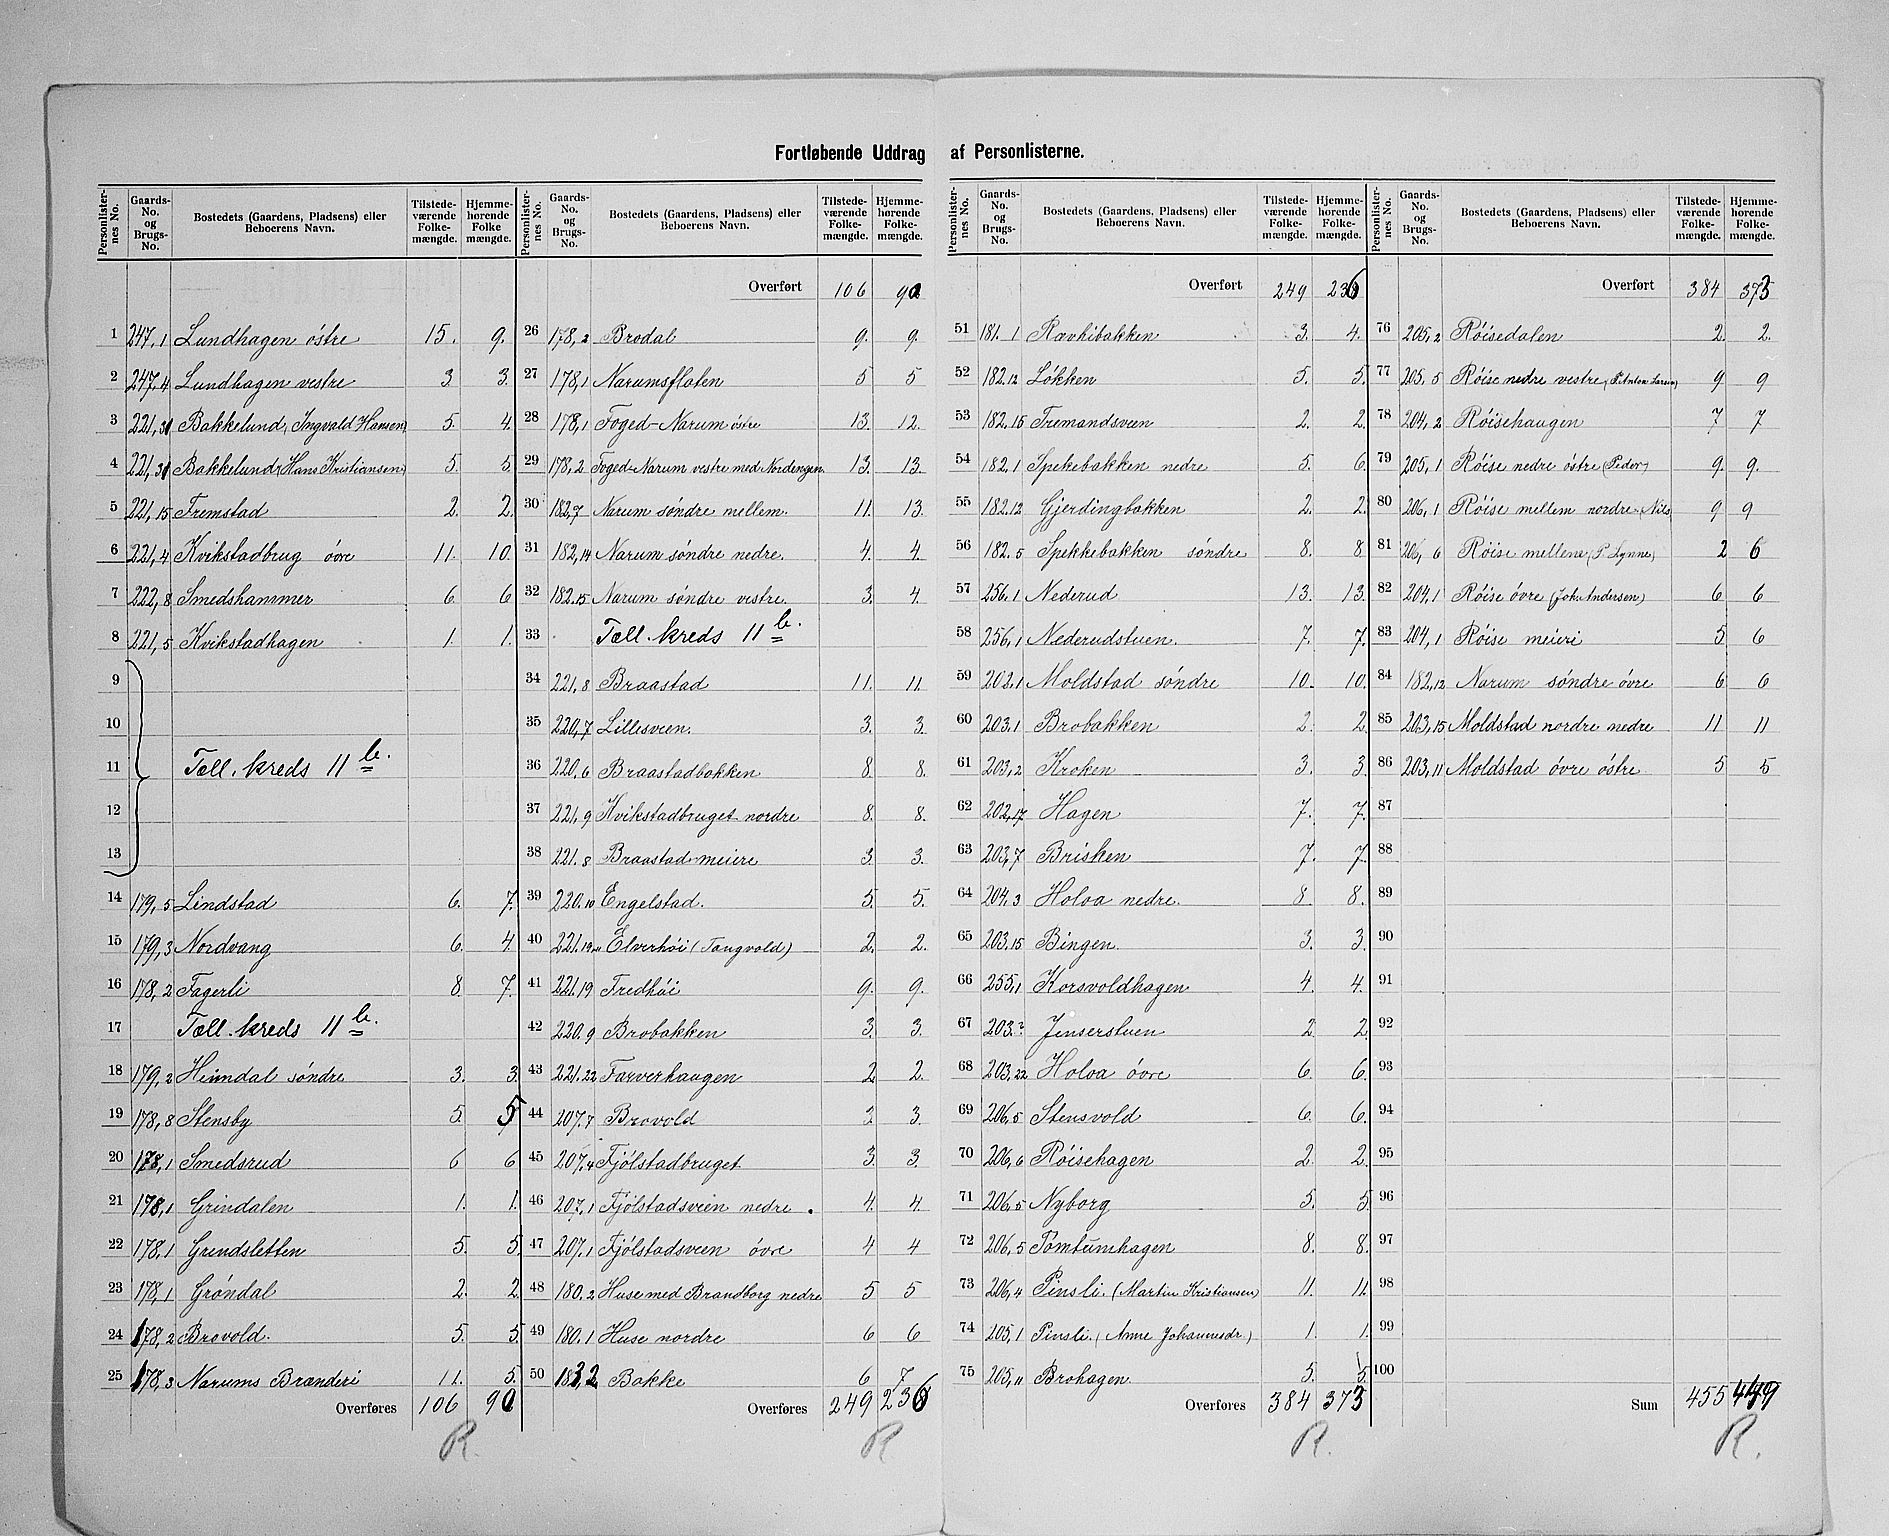 Fortløbende Uddrag af Personlisterne.
Personlisternes No. | Gaards-No. og Brugs-No. | Bostedets (Gaardens, Pladsens) eller Beboerens Navn. | Tilstedeværende Folkemængde. | Hjemmehørende Folkemængde.
1 247,1 Lundhagen östre 15. 9.
2 247,4 Lundhagen vestre 3. 3.
3 221,31 Bakkelund (Ingvald Hansen) 5. 4.
4 221,31 Bakkelund (Hans Kristiansen) 5. 5.
5 221,15 Fremstad 2. 2.
6 221,4 Kvikstadbrug övre 11. 10.
7 222,8 Smedshammer 6. 6.
8 221,5 Kvikstadhagen 1. 1.
9
10
11 Tæll. kreds 11 b.
12
13
14 179,5 Lindstad 6. 7.
15 179,3 Nordvang 6. 4.
16 178,2 Fagerli 8. 7.
17 Tæll. kreds 11 b.
18 179,2 Heimdal söndre 3. 3.
19 178,8 Stensby 5. 5
20 178,1 Smedsrud 6 6
21 178,1 Grindalen 1. 1.
22 178,1 Grindsletten 5. 5.
23 178,1 Gröndal 2. 2
24 178,2 Brovold. 5. 5
25 178,3 Narums Brænderi 11. 5.
Overføres 106 90
R.
Overført 106 90
26 178,2 Brodal 9. 9.
27 178,1 Narumsfloten 5 5
28 178,1 Foged-Narum östre 13. 12.
29 178,2 Foged-Narum vestre med Nordengen 13. 13.
30 182,7 Narum söndre mellem. 11. 13.
31 182,14 Narum söndre nedre. 4. 4.
32 182.15 Narum söndre vestre. 3. 4.
33 Tæll. kreds 11 b.
34 221,8 Braastad 11. 11.
35 220,7 Lillesveen. 3. 3.
36 220,6 Braastadbakken 8 8.
37 221,9 Kvikstadbruget nordre 8. 8.
38 221.8 Braastad-meiere 3. 3.
39 220.10 Engelstad. 5. 5.
40 221.19 Elverhöi (Tangvold) 2. 2.
41 221.19 Fredhöi 9. 9.
42 220.9 Brobakken 3. 3.
43 221.22 Farverhaugen 2 2.
44 207.7 Brovold 3 3.
45 207.4 Fjölstadbruget 3. 3.
46 207,1 Fjölstadsveen nedre. 4. 4.
47 207.1 Fjölstadsveen övre 4 4
48 180.2 Huse med Brandborg nedre 5 5
49 180.1 Huse nordre 6 6
50 Bakke 6 7
Overføres 249 236
R
Overført 249 236
51 181.1 Rævhibakken 3. 4.
52 182.12 Lökken 5. 5.
53 182,15 Tremandsveen 2. 2.
54 182,1 Spekebakken nedre 5. 6.
55 182.12 Gjerdingbakken 2. 2.
56 182.5 Spekkebakken söndre 8. 8.
57 256.1 Nederud 13. 13.
58 256,1 Nederudstuen. 7. 7.
59 202.1 Moldstad söndre 10. 10.
60 203.1 Brobakken 2. 2.
61 203,2 Kroken 3. 3.
62 202,17 Hagen 7. 7.
63 203,7 Brisken 7. 7.
64 204.3 Holoa nedre. 8. 8.
65 203.15 Bingen. 3. 3.
66 255,1 Korsvoldhagen 4. 4.
67 203.? Jenserstuen 2 2.
68 203.22 Holoa övre 6. 6.
69 206,5 Stensvold 6. 6.
70 206,6 Röisehagen 2. 2.
71 206,5 Nyborg 5. 5.
72 206,5 Tömtumhagen 8. 8.
73 206,4 Pinsli. (Martin Kristiansen) 11. 11.
74 205,1 Pinsli. (Anne Johannesdr.) 1. 1.
75 205,11 Brohagen 5. 5.
Overføres 384 373
R.
Overført 384 373
76 205,2 Röisedalen 2. 2.
77 205.5 Röise nedre vestre 9 9
78 204,2 Röisehaugen 7 7
79 205,1 Röise nedre östre (Peder) 9. 9.
80 206,1 Röise mellem nordre (Nils) 9 9
81 206,6 Röise mellem (P. Lynne) 2 6
82 204,1 Röise övre (Joh. Andersen) 6 6
83 204,1 Röise meieri 5 6
84 182,12 Narum söndre övre 6 6
85 203,15 Moldstad nordre nedre 11 11
86 203,11 Moldstad övre östre 5 5
87
88
89
90
91
92
93
94
95
96
97
98
99
100
Sum 455 449
R.